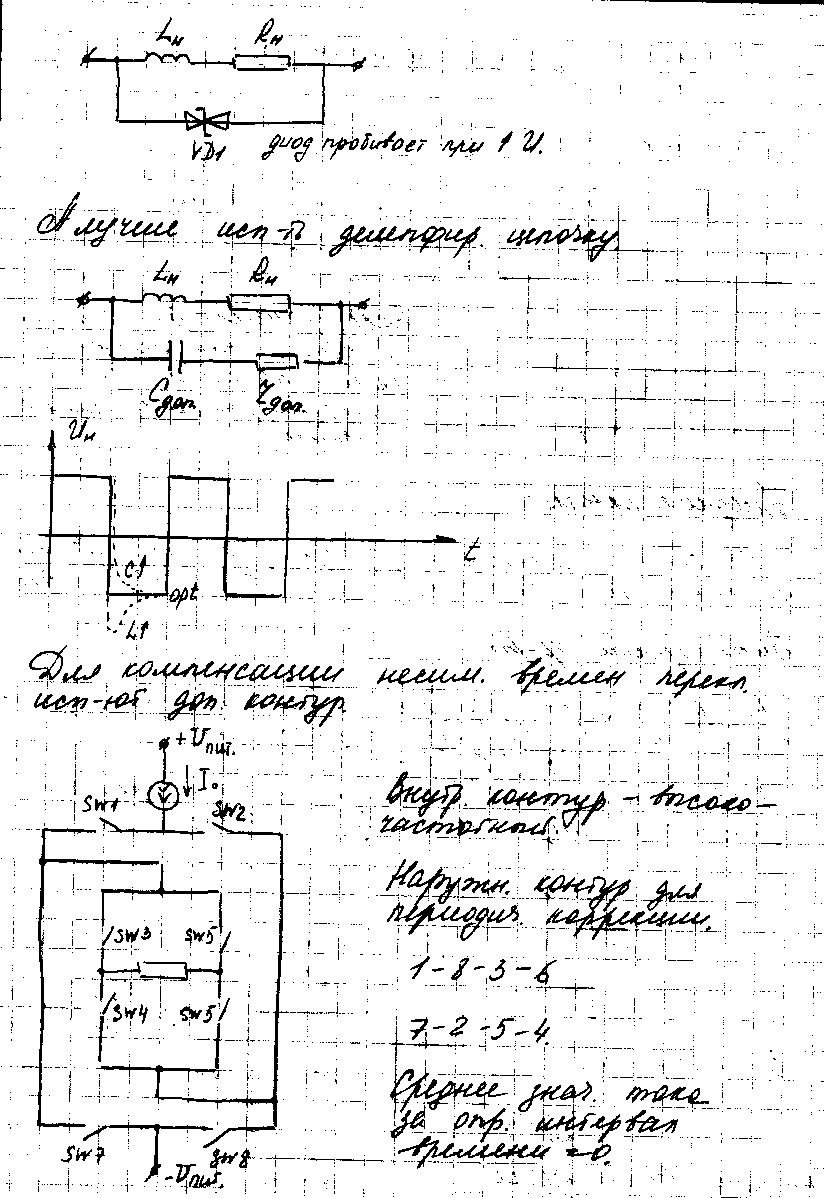 Lн Rн
VD1 диод пробивает при ↑ U.
А лучше исп-ть демпфир. цепочку.
Lн Rн
Cдоп. Zдоп.
Uн
t
C↑
opt
L↑
Для компенсации несим. времен перекл.
исп-ют доп. контур.
+Uпит.
I₀
SW1 SW2
Внутр. контур – высоко-
частотный.
Наружн. контур для
периодич. коррекции.
SW3 SW5
1-8-3-6
SW4 SW5
7-2-5-4.
Среднее знач. тока
за опр. интервал
времени =0.
SW7 SW8
-Uпит.